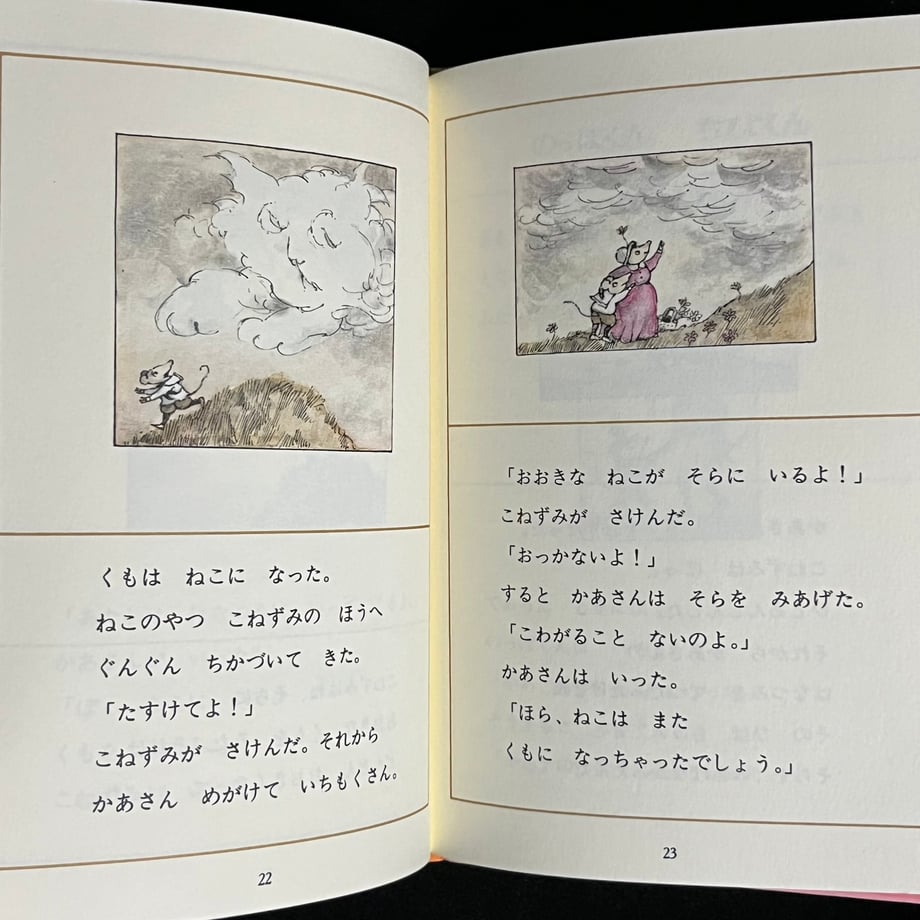 くもは　ねこに　なった。
ねこのやつ　こねずみの　ほうへ
ぐんぐん　ちかづいて　きた。
「たすけてよ！」
こねずみが　さけんだ。それから
かあさん　めがけて　いちもくさん。
22
「おおきな　ねこが　そらに　いるよ！」
こねずみが　さけんだ。
「おっかないよ！」
すると　かあさんは　そらを　みあげた。
「こわがること　ないのよ。」
かあさんは　いった。
「ほら、ねこは　また
くもに　なっちゃったでしょう。」
23